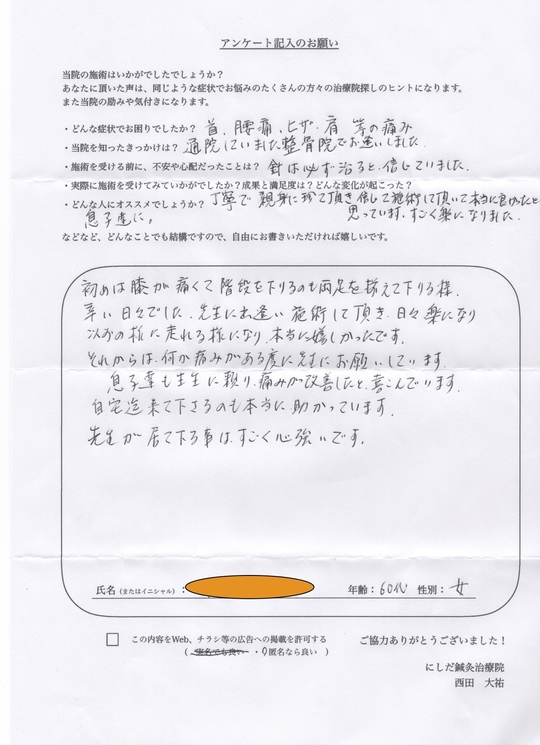 アンケート記入のお願い
当院の施術はいかがでしたでしょうか？
あなたに頂いた声は、同じような症状でお悩みのたくさんの方々の治療院探しのヒントになります。
また当院の励みや気付きになります。
・どんな症状でお困りでしたか？ 首、腰痛、ヒザ、肩 等の痛み
・当院を知ったきっかけは？ 通院していました整骨院でお逢いしました。
・施術を受ける前に、不安や心配だったことは？ 針は必ず治ると、信じていました。
・実際に施術を受けてみていかがでしたか？成果と満足度は？どんな変化が起こった？
丁寧で親身に 頂き 施術して頂いて本当に良かったと
・どんな人にオススメでしょうか？ 思っています、すごく楽になりました。
息子達に。
などなど、どんなことでも結構ですので、自由にお書きいただければ嬉しいです。
初めは膝が痛くて階段を下りるのも両足を揃えて下りる様、
辛い日々でした。先生に出逢い施術して頂き、日々楽になり
以前の様に走れる様になり、本当に嬉しかったです。
それからは、何か痛みがある度に先生にお願いしています。
息子達も先生に頼り、痛みが改善したと、喜こんでいます。
自宅迄来て下さるのも本当に、助かっています。
先生が居て下さる事は、すごく心強いです。
氏名（またはイニシャル）： 年齢：60代 性別：女
この内容をWeb、チラシ等の広告への掲載を許可する
（ 実名でも良い ・ 匿名なら良い ）
ご協力ありがとうございました！
にしだ鍼灸治療院
西田 大祐